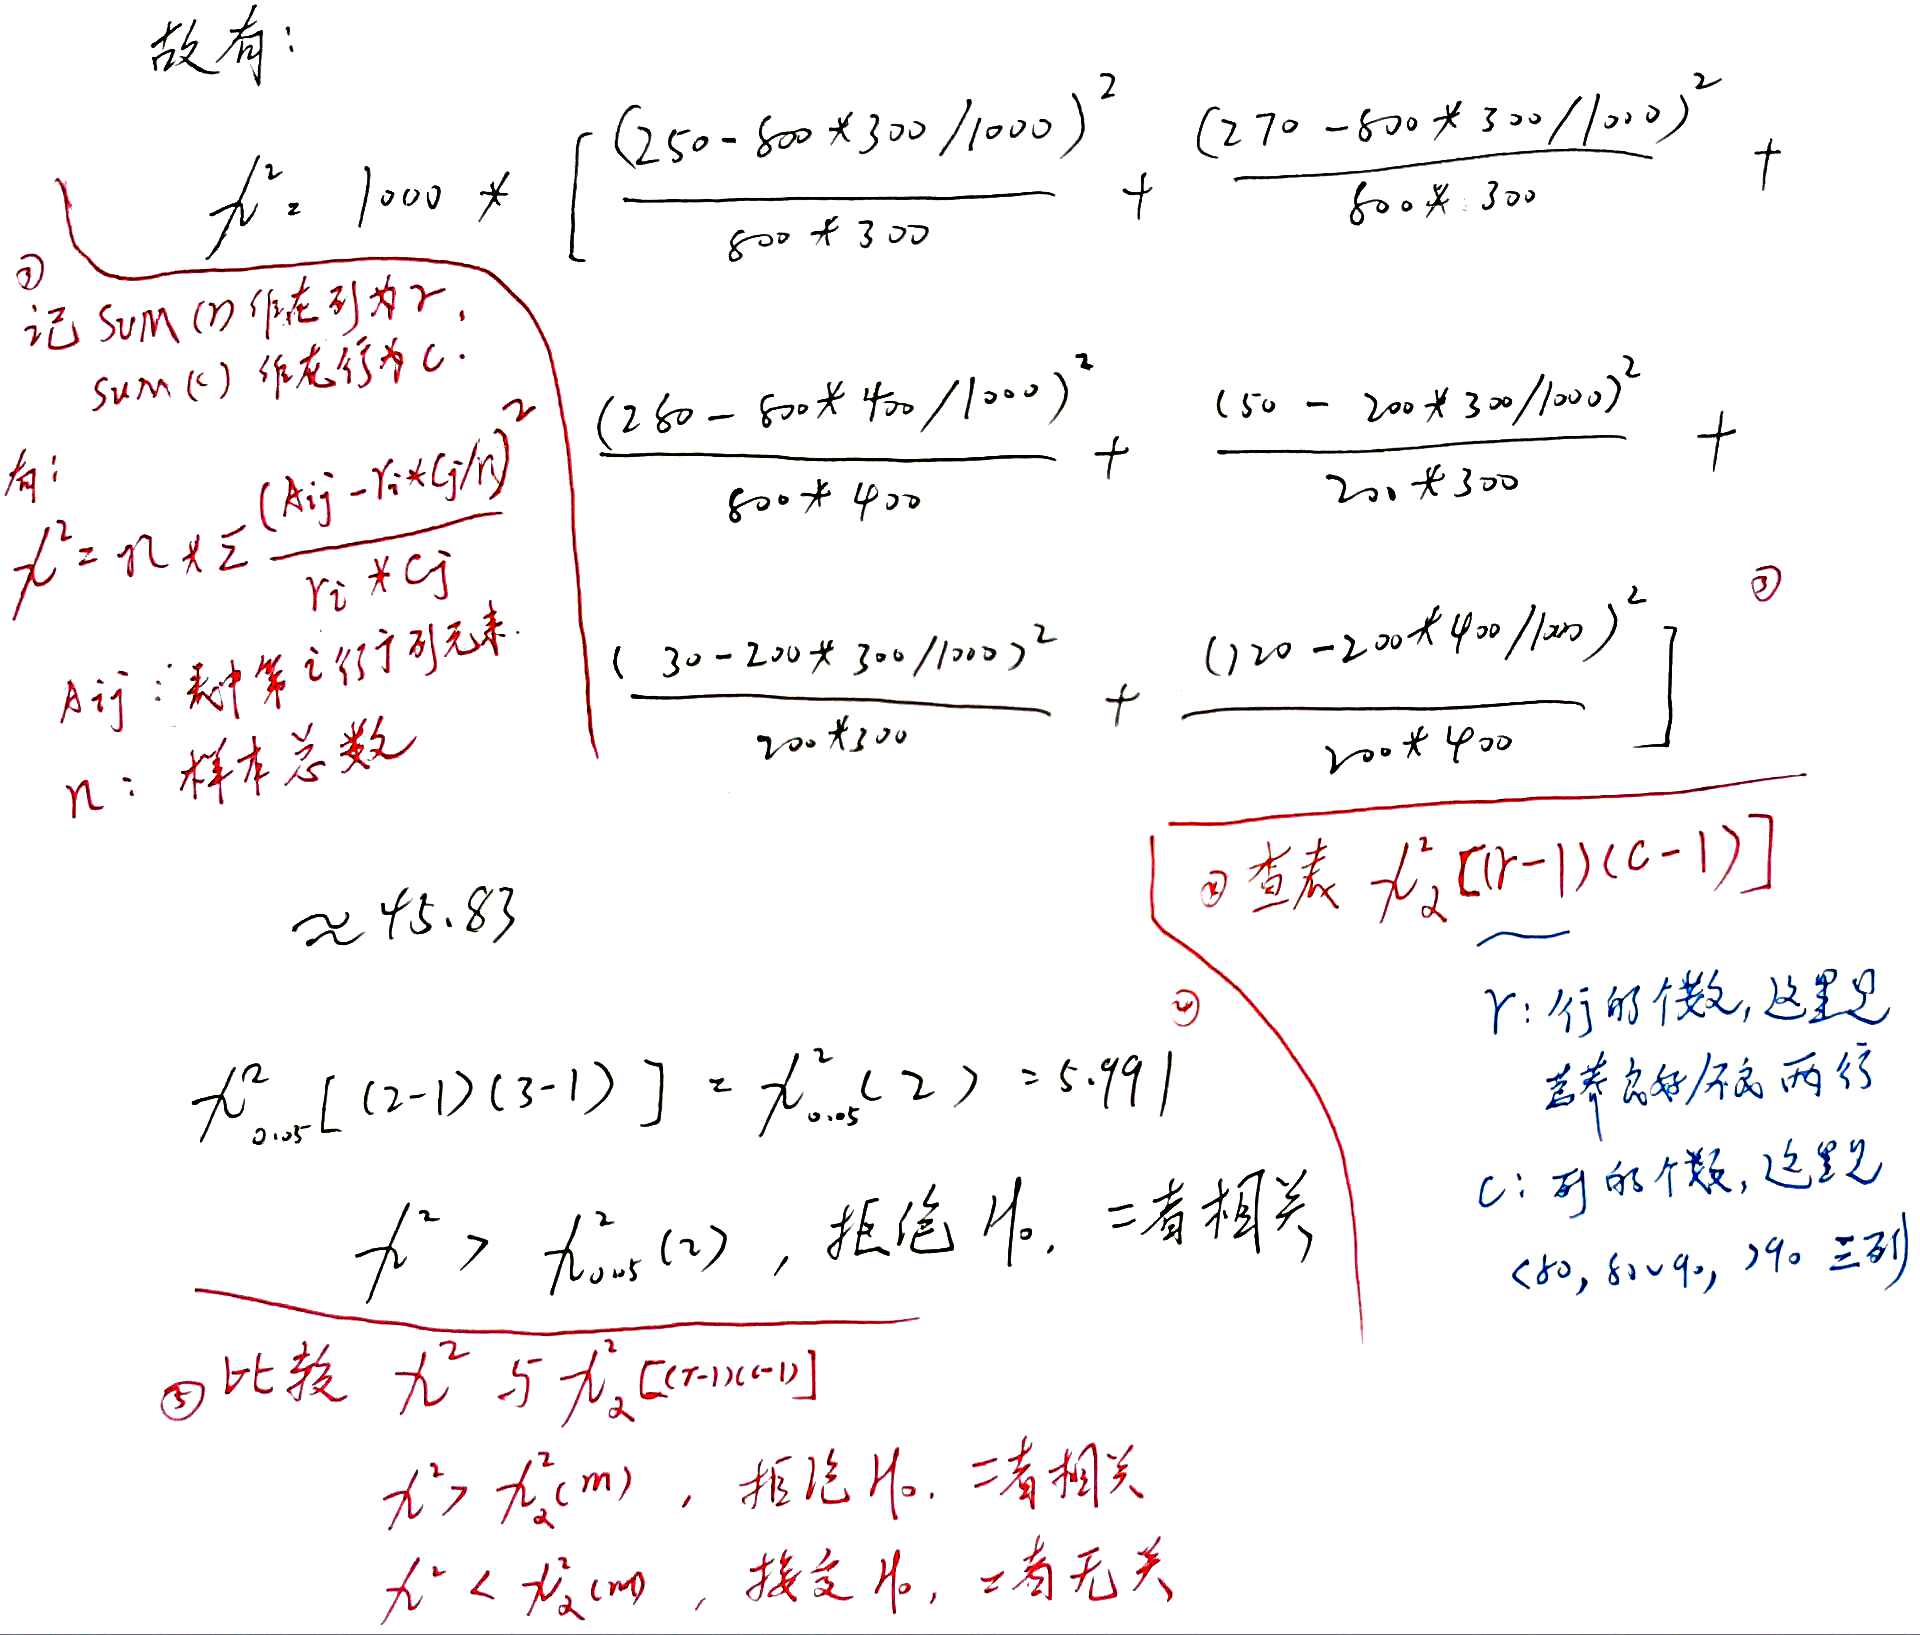 故有:
χ² = 1000 * [ (250-800*300/1000)² / 800*300 + (270-800*300/1000)² / 800*300 +
(280-800*400/1000)² / 800*400 + (50-200*300/1000)² / 200*300 +
(30-200*300/1000)² / 200*300 + (120-200*400/1000)² / 200*400 ]
③
记 SUM(r) 所在列为r,
SUM(c) 所在行为c.
有:
χ² = n * Σ (Aij-ri*cj/n)² / ri*cj
Aij: 表中第i行j列元素.
n: 样本总数
③
≈ 45.83
④ 查表 χ²α[(r-1)(c-1)]
r: 行的个数, 这里是
营养良好/不良 两行
c: 列的个数, 这里是
<80, 80~90, >90 三列
④
χ²0.05[(2-1)(3-1)] = χ²0.05(2) = 5.991
χ² > χ²0.05(2), 拒绝 H₀. 二者相关
⑤ 比较 χ² 与 χ²α[(r-1)(c-1)]
χ² > χ²α(m), 拒绝 H₀. 二者相关
χ² < χ²α(m), 接受 H₀, 二者无关